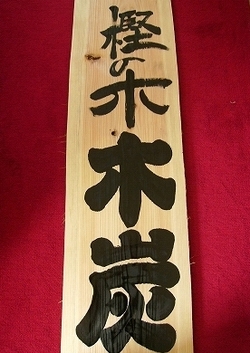 樫の木木炭